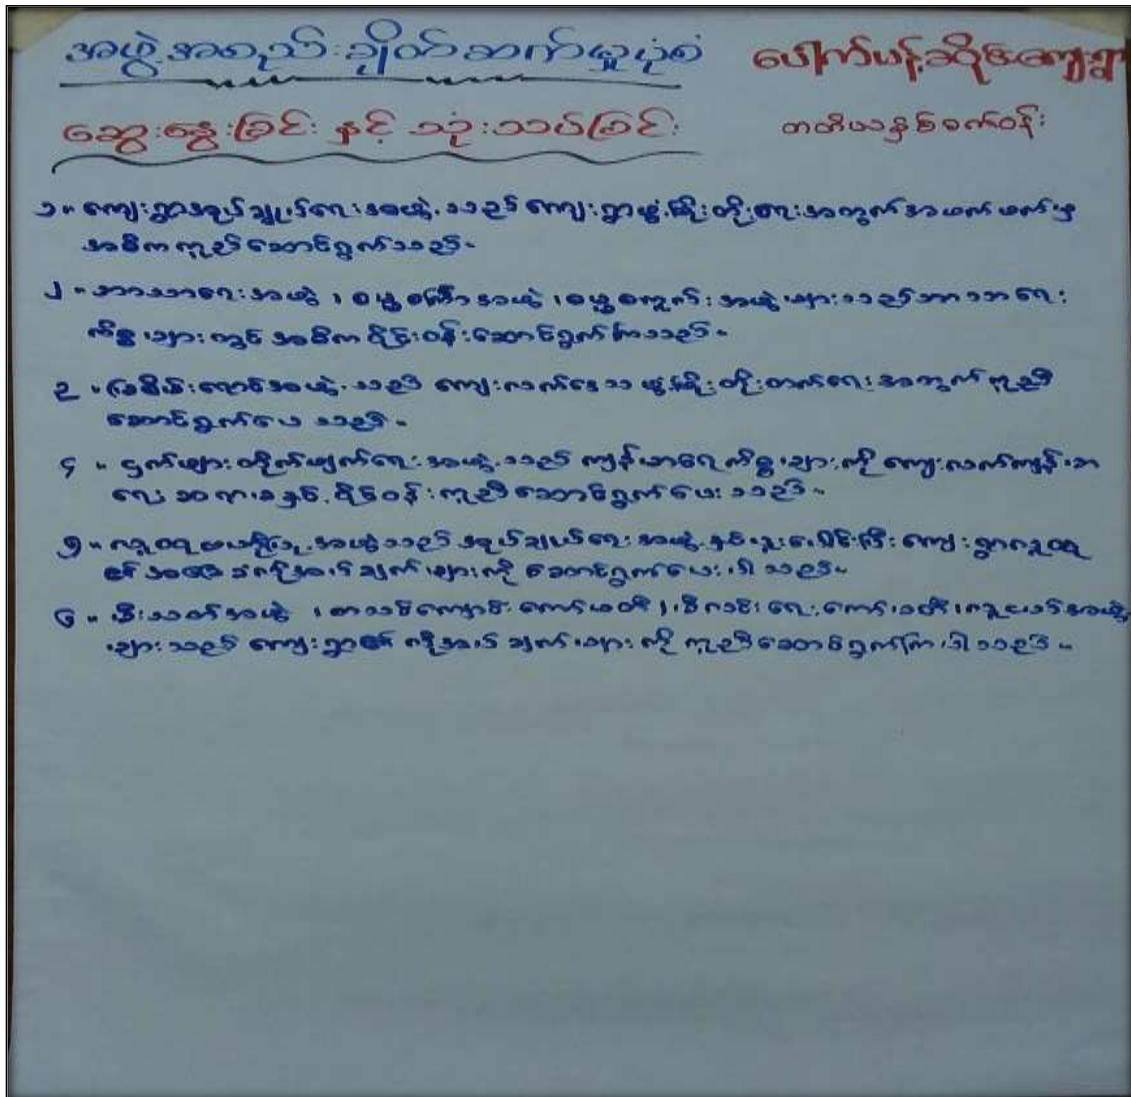 အဖွဲ့အစည်းချိတ်ဆက်မှုပုံစံ
ပေါက်ပန်းဆိုင်ကျေးရွာ
ဆွေးနွေးခြင်း နှင့် သုံးသပ်ခြင်း
တတိယနှစ်စက်ဝန်း
၁။ ကျေးရွာအုပ်ချုပ်ရေးအဖွဲ့သည် ကျေးရွာဖွံ့ဖြိုးတိုးရေးအတွက်အဖက်ဖက်မှ
အဓိကကူညီဆောင်ရွက်သည်။
၂။ ဘာသာရေးအဖွဲ့၊ ဓမ္မစကြာအဖွဲ့၊ ဓမ္မစကူး အဖွဲ့များသည်ဘာသာရေး
ကိစ္စများတွင် အဓိကဝိုင်းဝန်းဆောင်ရွက်ကြသည်။
၃။ မြစိမ်းရောင်အဖွဲ့သည် ကျေးလက်ဒေသ ဖွံ့ဖြိုးတိုးတက်ရေးအတွက်ကူညီ
ဆောင်ရွက်ပေးသည်။
၄။ ငှက်ဖျားတိုက်ဖျက်ရေးအဖွဲ့သည် ကျန်းမာရေကိစ္စများကို ကျေးလက်ကျန်းမာ
ရေးဆရာမနှင့် ဝိုင်းဝန်းကူညီဆောင်ရွက်ပေးသည်။
၅။ လူထုဗဟိုပြုအဖွဲ့သည် အုပ်ချုပ်ရေးအဖွဲ့နှင့်ပူးပေါင်းပြီး ကျေးရွာလူထု
၏အခြေခံလိုအပ်ချက်များကို ဆောင်ရွက်ပေးပါသည်။
၆။ မီးသတ်အဖွဲ့၊ စာသင်ကျောင်းကော်မတီ၊ မီးလင်းရေးကော်မတီ၊ လူငယ်အဖွဲ့
များသည် ကျေးရွာ၏ လိုအပ်ချက်များကို ကူညီဆောင်ရွက်ကြပါသည်။